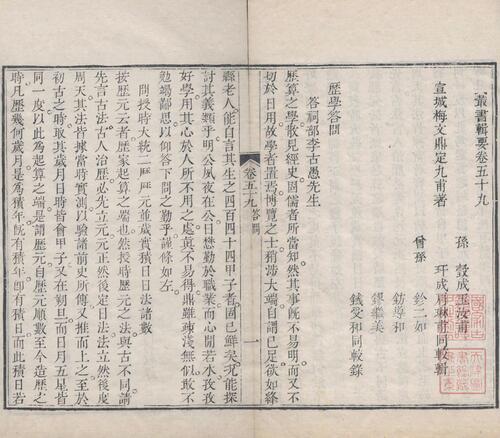 叢書輯要卷五十九
宣城梅文鼎定九甫著
孫 瑴成玉汝甫
玕成肩琳甫同較輯
曾孫 鈖二如
鈁導和
鏐繼美
受和同較錄
歷學答問
答祠部李古愚先生
歷算之學散見經史固儒者所當知然其事旣不易明而又不
切於日用故學者置焉博覽之士稍涉大端自謂已足欲如絳
卷五十九 答問 一
縣老人能自言其生之四百四十四甲子者固已鮮矣況能探
討其義類乎明公夙夜在公日懋勤於職業而心閒若水孜孜
好學用其心於人所不用之處眞不易得鼎雖疎淺無似敢不
勉竭鄙思以仰答下問之勤乎謹條如左
問授時大統二歷歷元並歲實積日日法諸數
按歷元云者歷家起算之端也然授時歷元之法與古不同請
先言古法古人治歷必先立元元正然後定日法法立然後度
周天其法皆據當時實測以驗諸前史所傳又推而上之至於
初古之時取其歲月日時皆會甲子又在朔旦而日月五星皆
同一度以此為起算之端是謂歷元自歷元順數至今造歷之
時凡歷幾何歲月是為積年旣有積年即有積日而此積日若